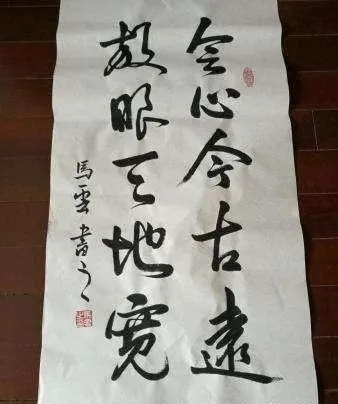 会心今古遠
放眼天地寛
馬雲書之